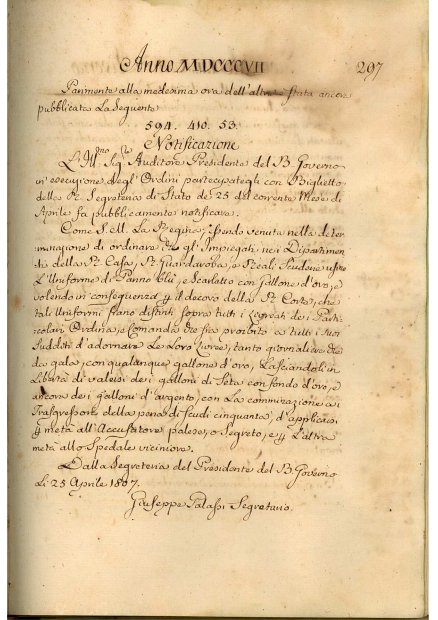 Anno MDCCCVII 297
Parimente alla medesima ora dell'altra è stata ancora
pubblicata La Seguente
594. 410. 53.
Notificazione
L'Ill:mo Sig:re Auditore Presidente del B Governo
in esecuzione degl'Ordini partecipategli con Biglietto
della R. Segreteria di Stato de' 25 del corrente Mese di
Aprile fa pubblicamente notificare.
Come S.M. La Regina; essendo venuta nella deter=
minazione di ordinare, che gl'Impiegati nei Dipartimen
ti della R. Casa, R. Guardaroba, e Reali Scuderie usino
L'Uniforme di Panno blù, e Scarlatto con Gallone d'oro, e
volendo in conseguenza p il decoro della R. Corte, che
tali Uniformi siano distinti sopra tutti i dei Parti=
colari Ordina, e Comanda che sia proibito a tutti i suoi
Sudditi d'adornare Le Loro Livree, tanto giornaliere che
da gala, con qualunque gallone d'oro, Lasciandoli in
Libertà di valersi dei galloni di Seta con fondo d'oro, e
ancora dei galloni d'argento, con La comminazione ai
Trasgressori della pena di Scudi cinquanta, d'applicarsi
p metà all'Accusatore palese, o Segreto, e p L'altra
metà allo Spedale viciniore.
Dalla Segreteria del Presidente del B Governo
Li 25 Aprile 1807.
Giuseppe Segretario.